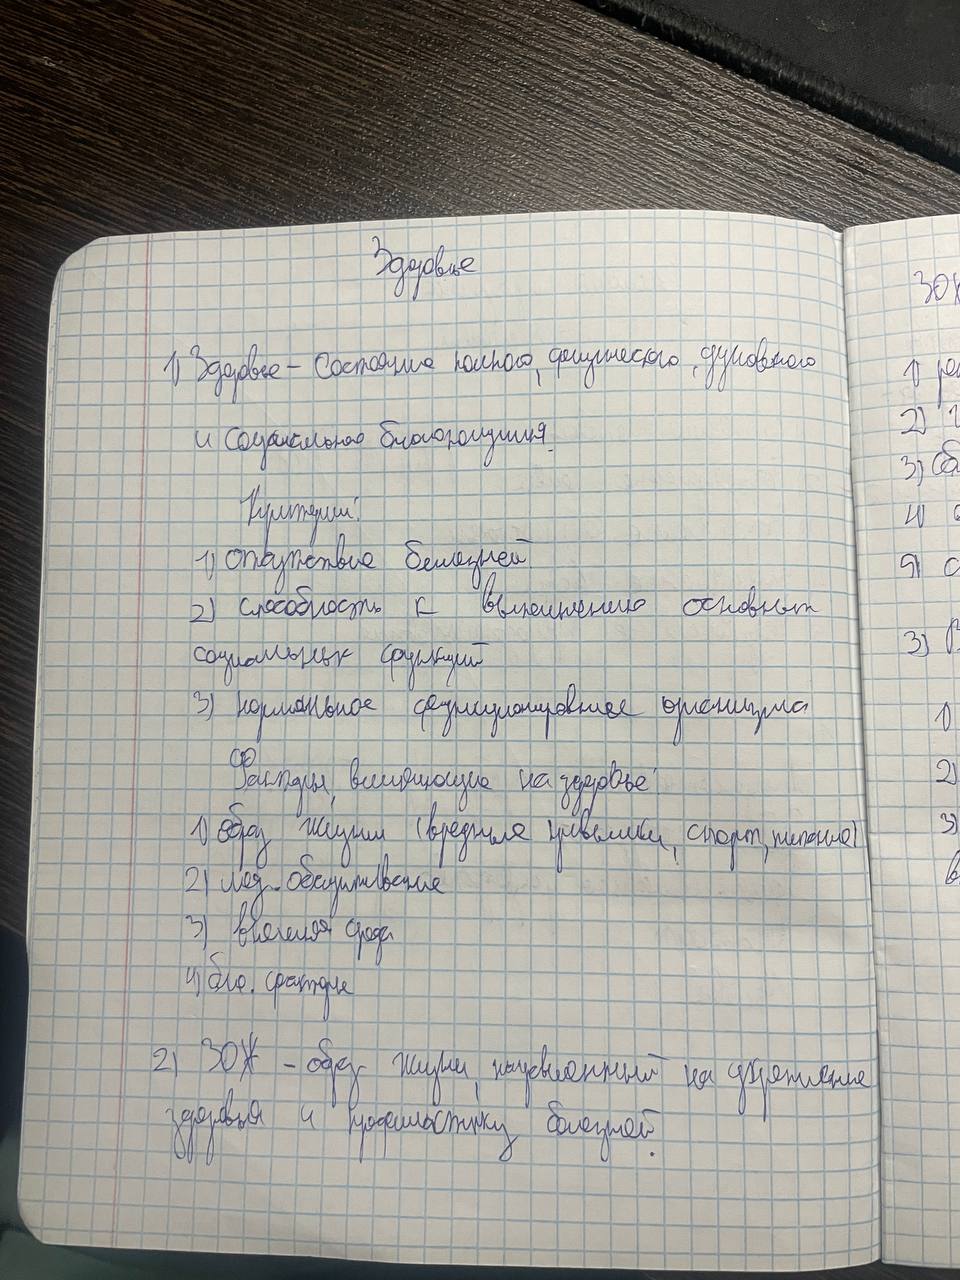 Здоровье
1) Здоровье – состояние полного, физического, духовного
и социального благополучия.
Критерии:
1) отсутствие болезней
2) способность к выполнению основных
социальных функций
3) нормальное функционирование организма
Факторы, влияющие на здоровье:
1) образ жизни (вредные привычки, спорт, питание)
2) мед. обслуживание
3) внешняя среда
4) био. факторы
2) ЗОЖ – образ жизни, направленный на укрепление
здоровья и профилактику болезней.
ЗОЖ
1)
2)
3)
4)
5)
3)
1)
2)
3)